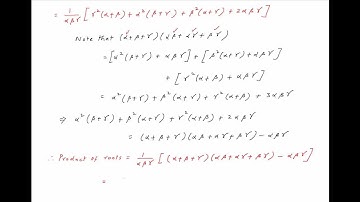 = 1/αβγ [γ²(α+β) + α²(β+γ) + β²(α+γ) + 2αβγ]
Note that (α+β+γ)(αβ+αγ+βγ)
= [α²(β+γ) + αβγ] + [β²(α+γ) + αβγ]
+ [γ²(α+β) + αβγ]
= α²(β+γ) + β²(α+γ) + γ²(α+β) + 3αβγ
⇒ α²(β+γ) + β²(α+γ) + γ²(α+β) + 2αβγ
= (α+β+γ)(αβ+αγ+βγ) - αβγ
∴ Product of roots = 1/αβγ [(α+β+γ)(αβ+αγ+βγ) - αβγ]
=